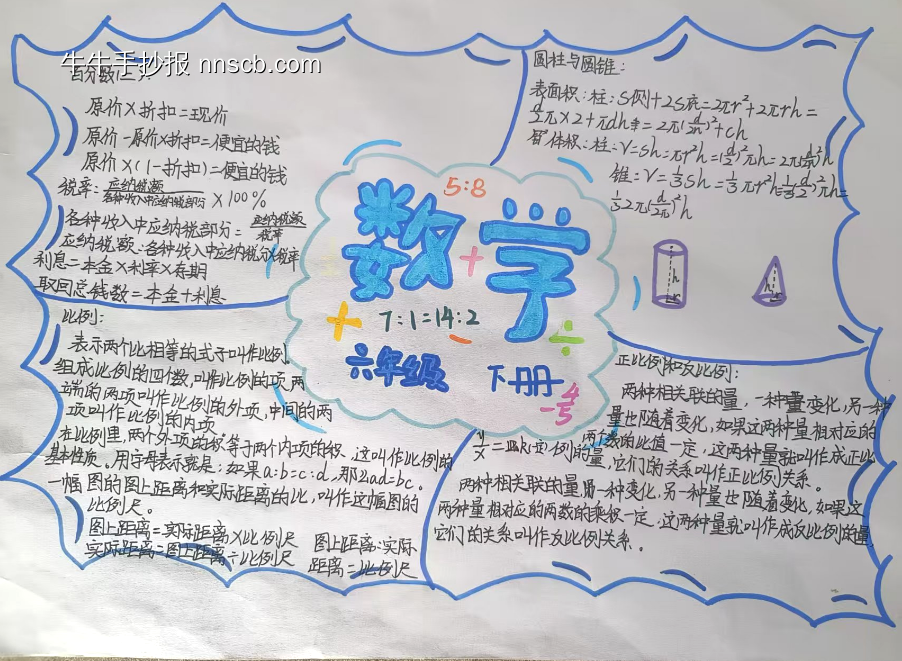 牛牛手抄报 nnscb.com
百分数(二):
原价×折扣=现价
原价-原价×折扣=便宜的钱
原价×(1-折扣)=便宜的钱
税率:应纳税额/各种收入中应纳税部分×100%
各种收入中应纳税部分=应纳税额/税率
应纳税额:各种收入中应纳税部分×税率
利息=本金×利率×存期
取回总钱数=本金+利息
圆柱与圆锥:
表面积:柱:S侧+2S底=2πr²+2πrh=
锥:V=⅓Sh=⅓πr²h=
5:8
数学
+
+
7:1=14:2
÷
六年级 下册
-4/5
h
r
h
r
比例:
表示两个比相等的式子叫作比例。
组成比例的四个数,叫作比例的项,两
端的两项叫作比例的外项,中间的两
项叫作比例的内项。
在比例里,两个外项的积等于两个内项的积,这叫作比例的
基本性质。用字母表示就是:如果a:b=c:d,那么ad=bc。
一幅图的图上距离和实际距离的比,叫作这幅图的
比例尺。
图上距离=实际距离×比例尺
实际距离=图上距离÷比例尺
图上距离:实际
距离=比例尺
正比例和反比例:
两种相关联的量,一种量变化,另一种
量也随着变化,如果这两种量相对应的
两个数的比值一定,这两种量就叫作成正比
例的量,它们的关系叫作正比例关系。
y/x=k(一定)
两种相关联的量,一种变化,另一种量也随着变化,如果这
两种量相对应的两数的乘积一定,这两种量就叫作成反比例的量,
它们的关系叫作反比例关系。